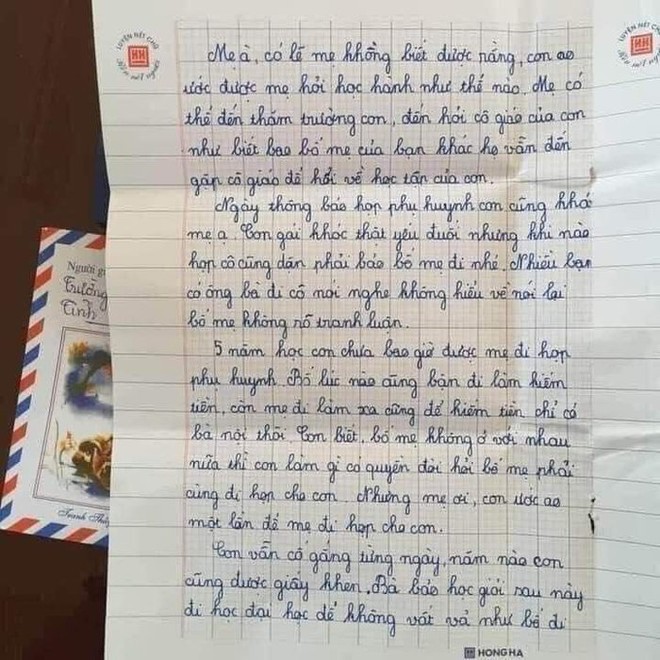 LUYỆN NÉT CHỮ
HH
Rèn nết người
Mẹ à, có lẽ mẹ không biết được rằng, con ao
ước được mẹ hỏi học hành như thế nào. Mẹ có
thể đến thăm trường con, đến hỏi cô giáo của con
như biết bao bố mẹ của bạn khác họ vẫn đến
gặp cô giáo để hỏi về học tập của con.
Ngày thông báo họp phụ huynh con cũng khó
mẹ ạ. Con gái khóc thật yếu đuối nhưng khi nào
họp cô cũng dặn phải bảo bố mẹ đi nhé. Nhiều bạn
có ông bà đi cô nói nghe không hiểu về nói lại
bố mẹ không rõ tranh luận.
5 năm học con chưa bao giờ được mẹ đi họp
phụ huynh. Bố lúc nào cũng bận đi làm kiếm
tiền, còn mẹ đi làm xa cũng để kiếm tiền chỉ có
bà nội thôi. Con biết, bố mẹ không ở với nhau
nữa thì con làm gì có quyền đòi hỏi bố mẹ phải
cùng đi họp cho con. Nhưng mẹ ơi, con ước ao
một lần để mẹ đi họp cho con.
Con vẫn cố gắng từng ngày, năm nào con
cũng được giấy khen. Bà bảo học giỏi sau này
đi học đại học để không vất vả như bố đi
HONG HA
HH
Người g
Trường
Tỉnh
Tranh Thủy